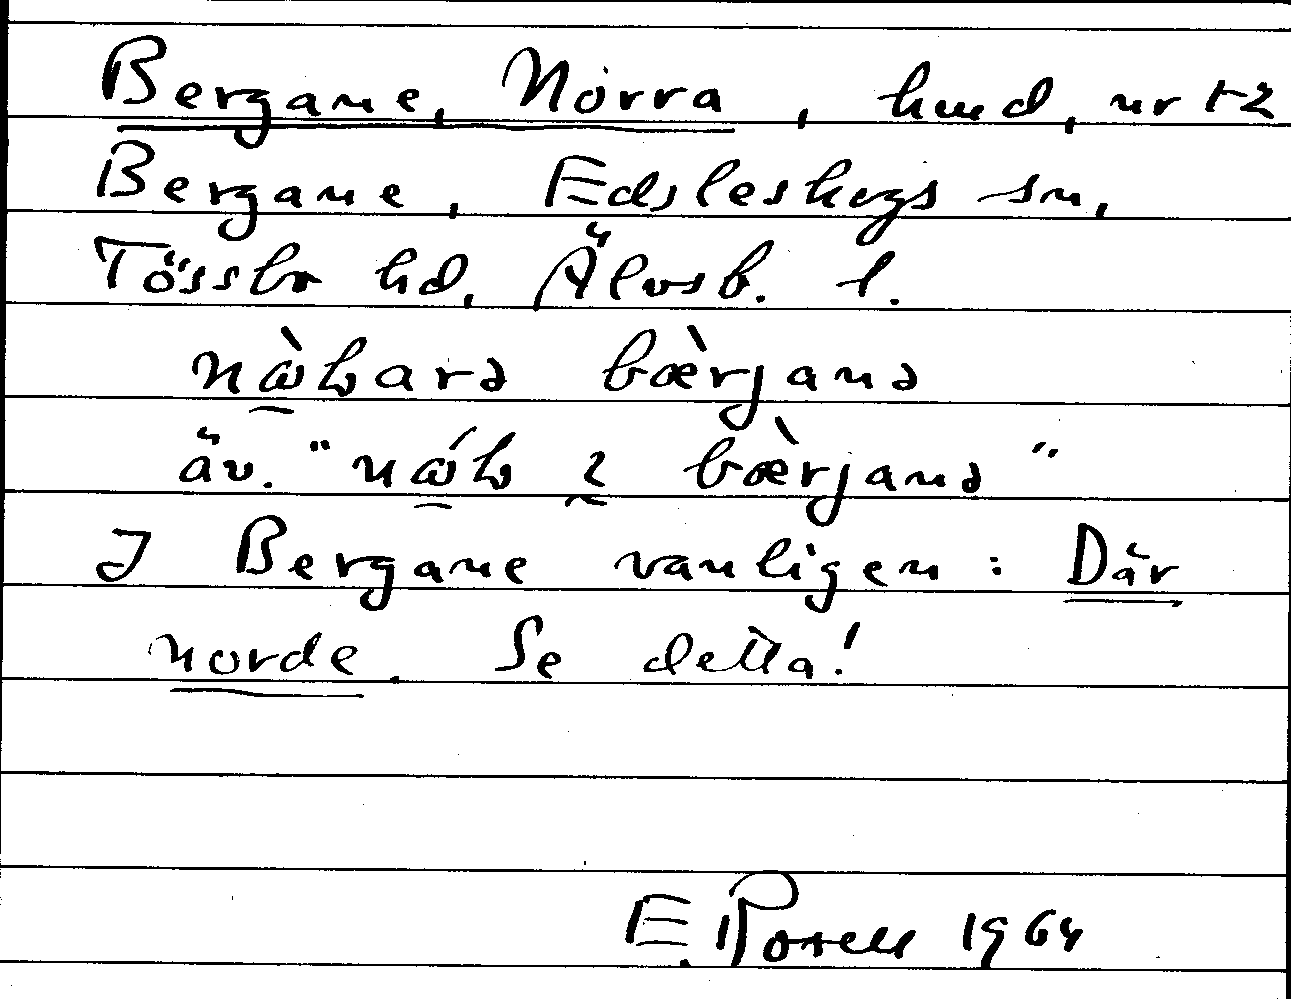 Bergane, Norra, hmd, nr 1-2
Bergane, Edsleskogs sn,
Tössbo hd, Älvsb. l.
bærjanə
äv. " bærjanə "
I Bergane vanligen: Där
norde. Se detta!
E. Rosell 1964